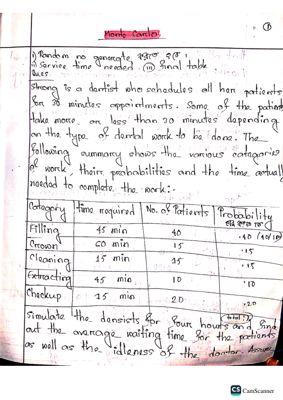 ①
Monte Carlo:
i) Random no generate করতে হবে।
ii) Service time needed. (iii) final table
Ques
Strong is a dentist who schedules all her patients
for 30 minutes appointments. Some of the patients
take more or less than 30 minutes depending
on the type of dental work to be done. The
following summary shows the various categories
of work, their probabilities and the time actually
needed to complete the work:-
Category time required No. of Patients Probability
Filling 45 min 40 .40 (40/100)
Crown 60 min 15 .15
Cleaning 15 min 15 .15
Extracting 45 min 10 .10
Checkup 15 min 20 .20
(total 1)
Simulate the densists for four hours and find
out the average waiting time for the patients
as well as the idleness of the doctor.
CS CamScanner